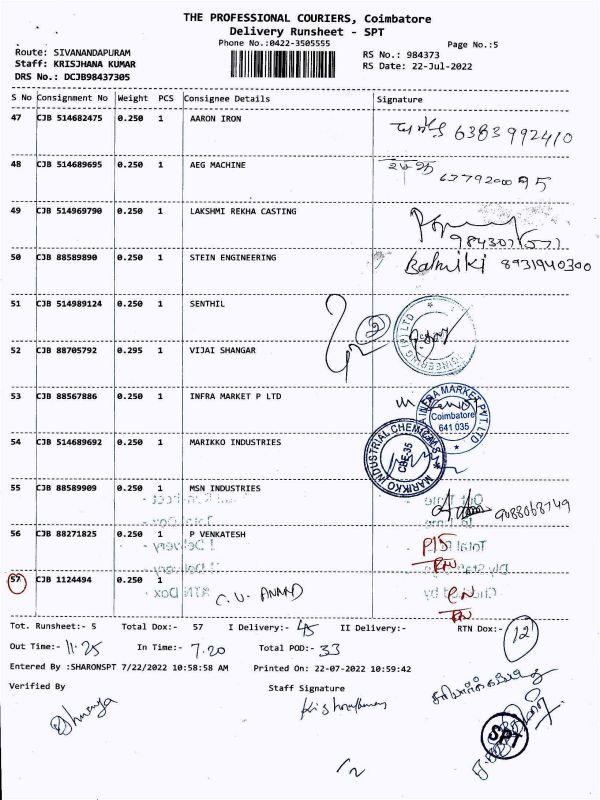 THE PROFESSIONAL COURIERS, Coimbatore
Delivery Runsheet - SPT
Phone No.:0422-3505555
Page No.:5
Route: SIVANANDAPURAM
RS No.: 984373
Staff: KRISJHANA KUMAR
RS Date: 22-Jul-2022
DRS No.: DCJB98437305
S No Consignment No Weight PCS Consignee Details Signature
47 CJB 514682475 0.250 1 AARON IRON 6383992410
48 CJB 514689695 0.250 1 AEG MACHINE
49 CJB 514969790 0.250 1 LAKSHMI REKHA CASTING
50 CJB 88589890 0.250 1 STEIN ENGINEERING Kalmiki 8931940300
51 CJB 514989124 0.250 1 SENTHIL 2
52 CJB 88705792 0.295 1 VIJAI SHANGAR
53 CJB 88567886 0.250 1 INFRA MARKET P LTD
INFRA MARKET PVT.LTD
Coimbatore
641 035
54 CJB 514689692 0.250 1 MARIKKO INDUSTRIES
MARIKKO INDUSTRIAL CHEMICALS
CBE-35
55 CJB 88589909 0.250 1 MSN INDUSTRIES 9088068749
56 CJB 88271825 0.250 1 P VENKATESH P/S
57 CJB 1124494 0.250 1 C.U. ANAND
Tot. Runsheet:- 5 Total Dox:- 57 I Delivery:- 45 II Delivery:- RTN Dox:- 12
Out Time:- 11.25 In Time:- 7.20 Total POD:- 33
Entered By :SHARONSPT 7/22/2022 10:58:58 AM Printed On: 22-07-2022 10:59:42
Verified By Staff Signature
SPT